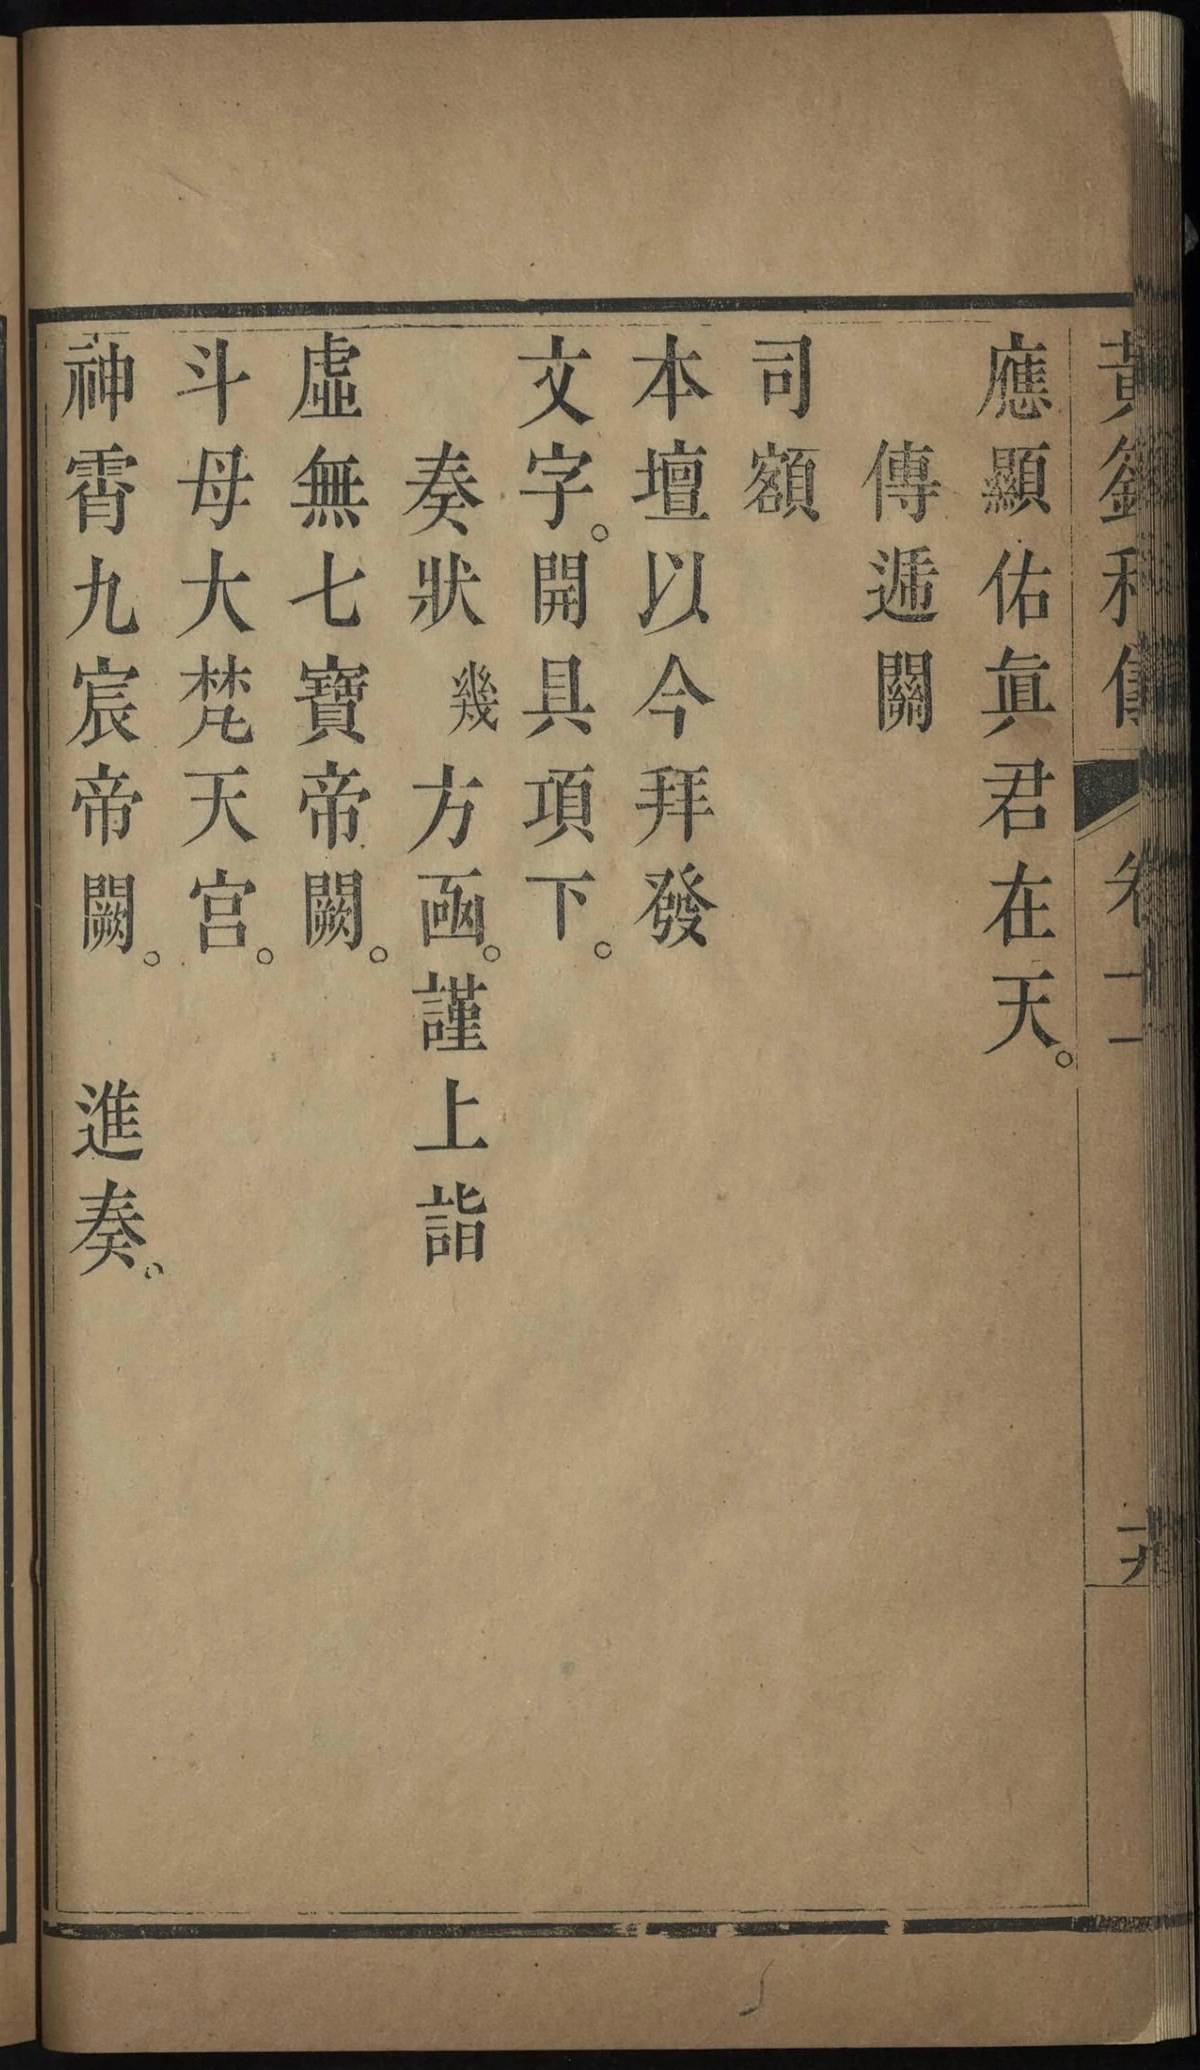 應顯佑眞君在天。
傳遞關
司額
本壇以今拜發
文字。開具項下。
奏狀幾方凾。謹上詣
虛無七寶帝闕。
斗母大梵天宫。
神霄九宸帝闕。 進奏。